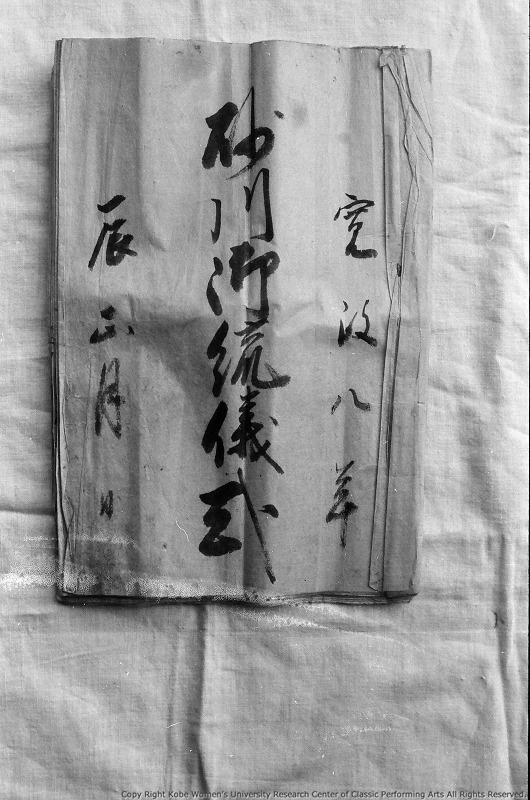 寛政八年
砂川御統儀式
辰正月日
Copy Right Kobe Women's University Research Center of Classic Performing Arts All Rights Reserved.